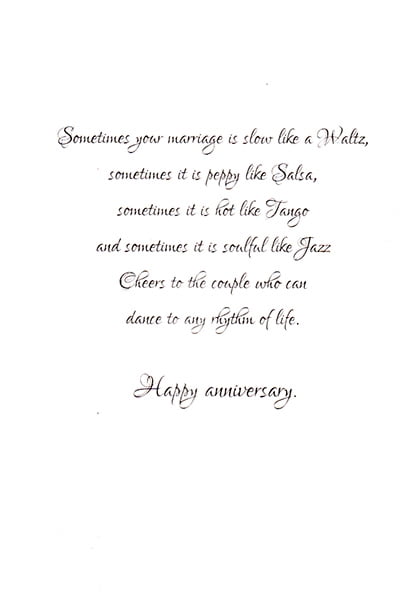 Sometimes your marriage is slow like a Waltz,
sometimes it is peppy like Salsa,
sometimes it is hot like Tango
and sometimes it is soulful like Jazz
Cheers to the couple who can
dance to any rhythm of life.
Happy anniversary.